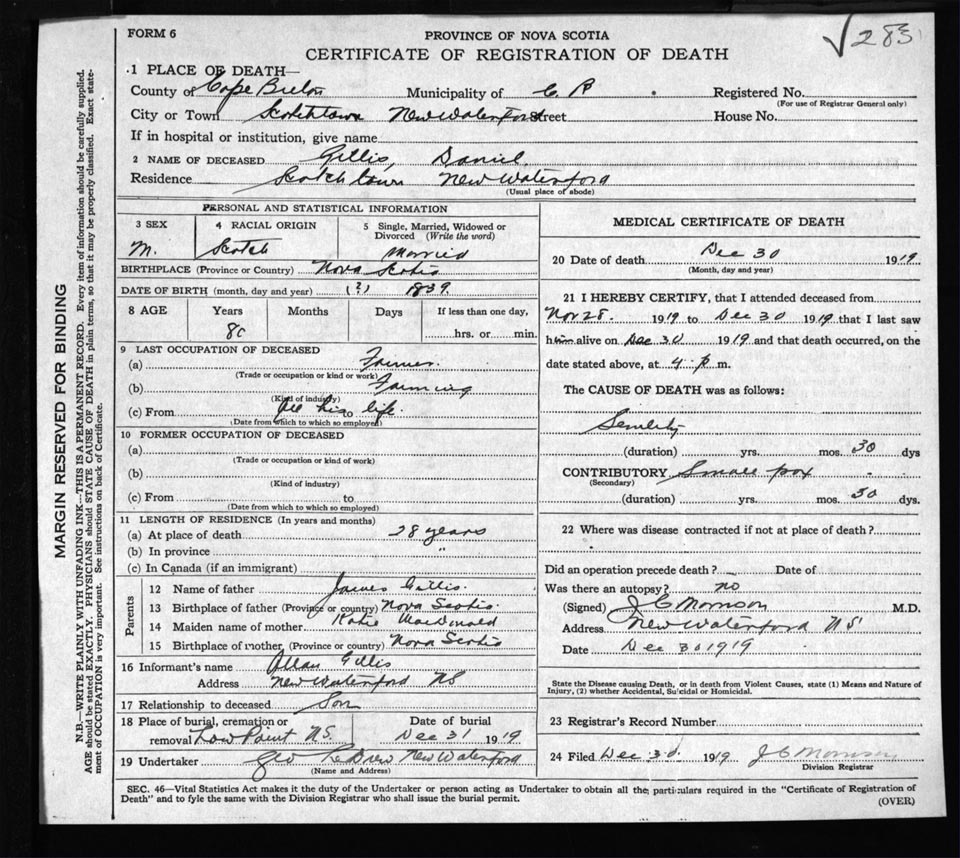 FORM 6
PROVINCE OF NOVA SCOTIA
CERTIFICATE OF REGISTRATION OF DEATH
283
1 PLACE OF DEATH—
County of Cape Breton Municipality of C B Registered No.
(For use of Registrar General only)
City or Town Scotchtown New Waterford Street House No.
If in hospital or institution, give name
2 NAME OF DECEASED Gillis, Daniel
Residence Scotch town New Waterford
(Usual place of abode)
PERSONAL AND STATISTICAL INFORMATION
3 SEX 4 RACIAL ORIGIN 5 Single, Married, Widowed or Divorced (Write the word)
M. Scotch Married
BIRTHPLACE (Province or Country) Nova Scotia
DATE OF BIRTH (month, day and year) (?) 1839
8 AGE Years Months Days If less than one day,
80 hrs. or min.
9 LAST OCCUPATION OF DECEASED
(a) Farmer
(Trade or occupation or kind or work)
(b) Farming
(Kind of industry)
(c) From All his life to
(Date from which to which so employed)
10 FORMER OCCUPATION OF DECEASED
(a)
(Trade or occupation or kind of work)
(b)
(Kind of industry)
(c) From to
(Date from which to which so employed)
11 LENGTH OF RESIDENCE (In years and months)
(a) At place of death 28 years
(b) In province "
(c) In Canada (if an immigrant)
Parents
12 Name of father James Gillis
13 Birthplace of father (Province or country) Nova Scotia
14 Maiden name of mother Katie MacDonald
15 Birthplace of mother (Province or country) Nova Scotia
16 Informant's name Allan Gillis
Address New Waterford NS
17 Relationship to deceased Son
18 Place of burial, cremation or Date of burial
removal Low Point N.S. Dec 31 1919
19 Undertaker Geo LeDrew New Waterford
(Name and Address)
MEDICAL CERTIFICATE OF DEATH
20 Date of death Dec 30 1919
(Month, day and year)
21 I HEREBY CERTIFY, that I attended deceased from
Nov 28. 1919 to Dec 30 1919 that I last saw
him alive on Dec 30 1919 and that death occurred, on the
date stated above, at 4 p m.
The CAUSE OF DEATH was as follows:
Senility
(duration) yrs. mos. 30 dys
CONTRIBUTORY Small pox
(Secondary)
(duration) yrs. mos. 30 dys.
22 Where was disease contracted if not at place of death?
Did an operation precede death? Date of
Was there an autopsy? no
(Signed) J C Morrison M.D.
Address New Waterford NS
Date Dec 30 1919
State the Disease causing Death, or in death from Violent Causes, state (1) Means and Nature of
Injury, (2) whether Accidental, Suicidal or Homicidal.
23 Registrar's Record Number
24 Filed Dec 30. 1919 J C Morrison
Division Registrar
SEC. 46—Vital Statistics Act makes it the duty of the Undertaker or person acting as Undertaker to obtain all the particulars required in the "Certificate of Registration of
Death" and to fyle the same with the Division Registrar who shall issue the burial permit.
(OVER)
MARGIN RESERVED FOR BINDING
N.B.—WRITE PLAINLY WITH UNFADING INK—THIS IS A PERMANENT RECORD. Every item of information should be carefully supplied.
AGE should be stated EXACTLY. PHYSICIANS should STATE CAUSE OF DEATH in plain terms, so that it may be properly classified. Exact state-
ment of OCCUPATION is very important. See instructions on back of Certificate.